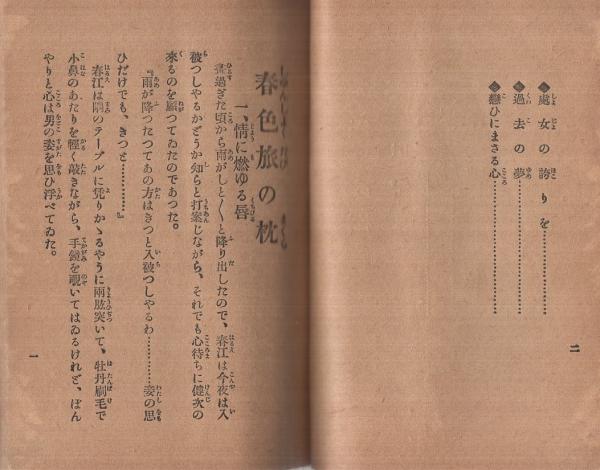 ◆處女の誇りを…………………
◆過去の夢…………………
◆戀ひにまさる心…………………
二
春色旅の枕
一、情に燃ゆる唇
晝過ぎた頃から雨がしと〱と降り出したので、春江は今夜は入
被つしやるかどうか知らと打案じながら、それでも心待ちに健次の
來るのを願つてゐたのであつた。
『雨が降つたつてあの方はきつと入被つしやるわ…………妾の思
ひだけでも、きつと…………』
春江は隅のテーブルに凭りかゝるやうに兩肱突いて、牡丹刷毛で
小鼻のあたりを輕く敲きながら、手鏡を覗いてはゐるけれど、ぼん
やりと心は男の姿を思ひ浮べてゐた。
一